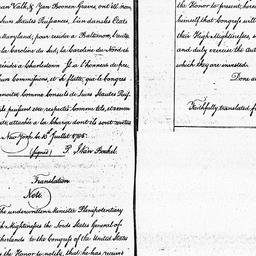 van Valk, & Jan Boonen Graves, ont été nom
Leurs Hautes Puissances, l'un dans l'Etat
Maryland, pour résider à Baltimore, l'autre
la Caroline du Sud, la Caroline du Nord et
résidera à Charlestown. Il a l'honneur de pré
leur Commission, et se flatte, que le Congrès
connoitra comme Consuls de Leurs Hautes Puis
attachés à la Charge dont ils sont
New York, le 15e Juillet 1786.
(signé) P. J. van Berckel.
Translation
Note
The underwritten Minister Plenipotentiary
High Mightinesses the Lords States General of
Netherlands to the Congress of the United States
the Honor to notify, that he has received
the Honor to present, here
himself that Congress will
their High Mightinesses, a
and duly receive the aut
which they are invested.
Done a
Faithfully translated f